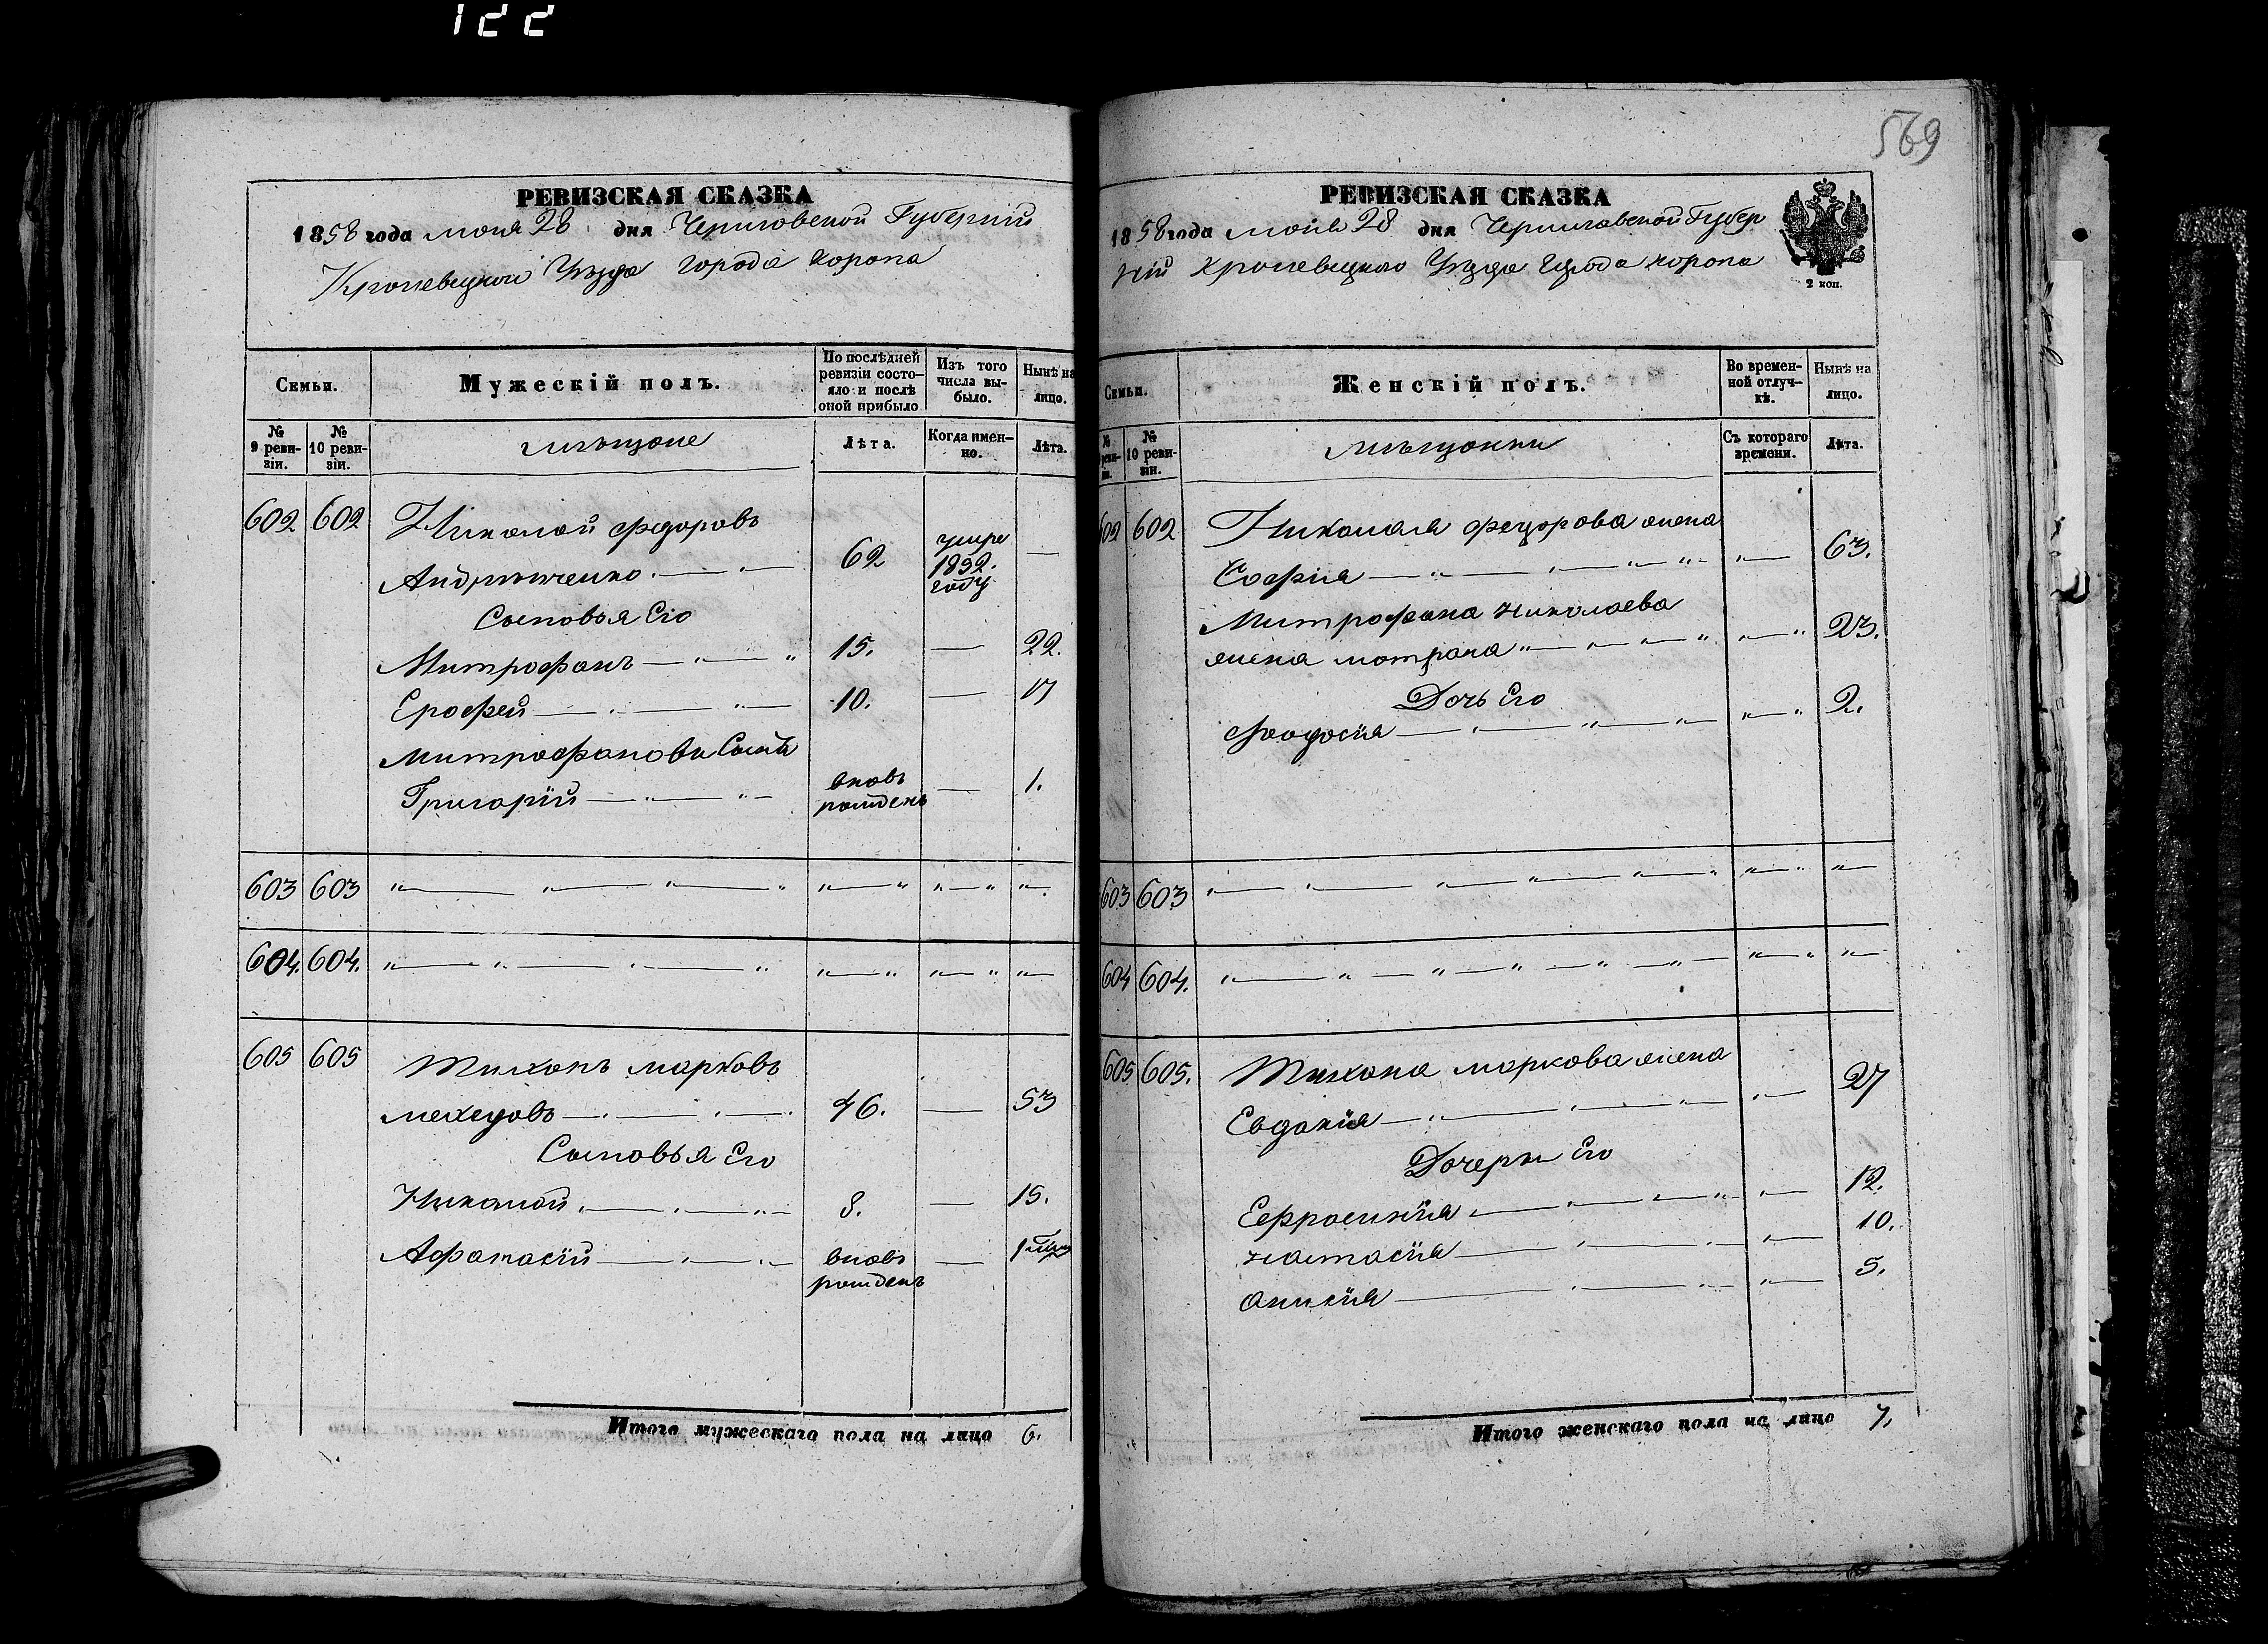 122
РЕВИЗСКАЯ СКАЗКА
1858 года моия 28 дня Черниговской Губерніи
Кролевецкого Уезда города Коропа
Семьи.
Мужескій полъ.
По послѣдней ревизіи состо-
яло и послѣ оной прибыло
Изъ того числа вы-
было.
Нынѣ на лицо.
№ 9 реви-
зіи.
№ 10 реви-
зіи.
мѣщане
Лѣта.
Когда имен-
но.
Лѣта.
602 602 Николай Федоровъ
Андрѣиченко 62 умре 1852. году —
Сыновья Его
Митрофанъ 15. — 22.
Ерофей 10. — 17
Митрофановъ Сынъ
Григорій вновь рожденъ — 1.
603 603
604. 604.
605 605 Тихонъ Марковъ
Мехедовъ 46. — 53
Сыновья Его
Николай 8. — 15.
Афанасій вновь рожденъ — 1
Итого мужескаго пола на лицо 6.
569
РЕВИЗСКАЯ СКАЗКА
1858 года моия 28 дня Черниговской Губер
ніи Кролевецкого Уезда города Коропа
2 коп.
Семьи.
Женскій полъ.
Во времен-
ной отлуч-
кѣ.
Нынѣ на лицо.
№ реви-
зіи.
№ 10 реви-
зіи.
мѣщанки
Съ котораго времени.
Лѣта.
602 602 Николая Федорова жена
Софія 63.
Митрофана Николаева
жена Мотрона 23.
Дочь Его
Феодосія 2.
603 603
604 604.
605 605. Тихона Маркова жена
Евдокія 27
Дочери Его
Ефросинія 12.
Настасія 10.
Акилія 5.
Итого женскаго пола на лицо 7.